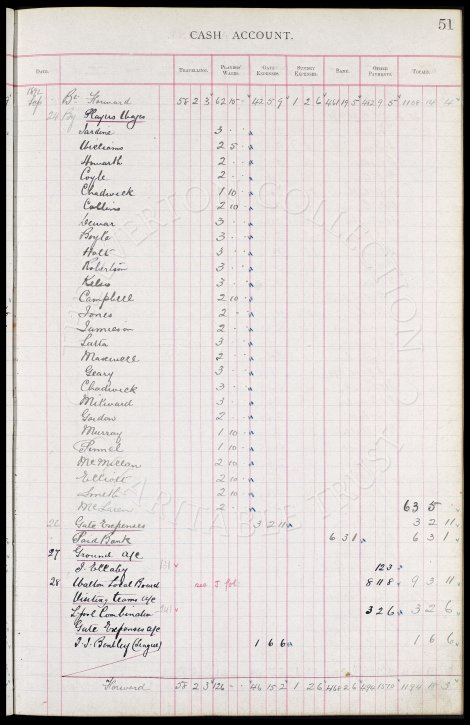 51
CASH ACCOUNT.
DATE. TRAVELLING. PLAYERS' WAGES. GATE EXPENSES. SUNDRY EXPENSES. BANK. OTHER PAYMENTS. TOTALS.
1892
Sep Bt Forward 58 2 3 62 15 - 42 5 9 1 2 6 461 19 5 482 9 5 1108 14 4
24 By Players Wages
Jardine 3 - -
Williams 2 5 -
Howarth 2 - -
Coyle 2 - -
Chadwick 1 10 -
Collins 2 10 -
Dewar 3 - -
Boyle 3 - -
Holt 3 - -
Robertson 3 - -
Kelso 3 - -
Campbell 2 10 -
Jones 2 - -
Jamieson 2 - -
Latta 3 - -
Maxwell 2 - -
Geary 3 - -
Chadwick 3 - -
Milward 3 - -
Gordon 2 - -
Murray 1 10 -
Pinnel 1 10 -
McMillan 2 10 -
Elliott 2 10 -
Smith 2 10 -
McLaren 2 - - 63 5 -
26 Gate Expenses 3 2 11 3 2 11
Paid Bank 6 3 1 6 3 1
27 Ground a/c
J. Ellaby 12 3
28 Walton Local Board 8 11 8 9 3 11
Visiting teams a/c
L'pool Combination 3 2 6 3 2 6
Gate Expenses a/c
J. J. Bentley (League) 1 6 6 1 6 6
Forward 58 2 3 126 - - 46 15 2 1 2 6 468 2 6 494 15 10 1194 18 3
EVERTON COLLECTION
CHARITABLE TRUST